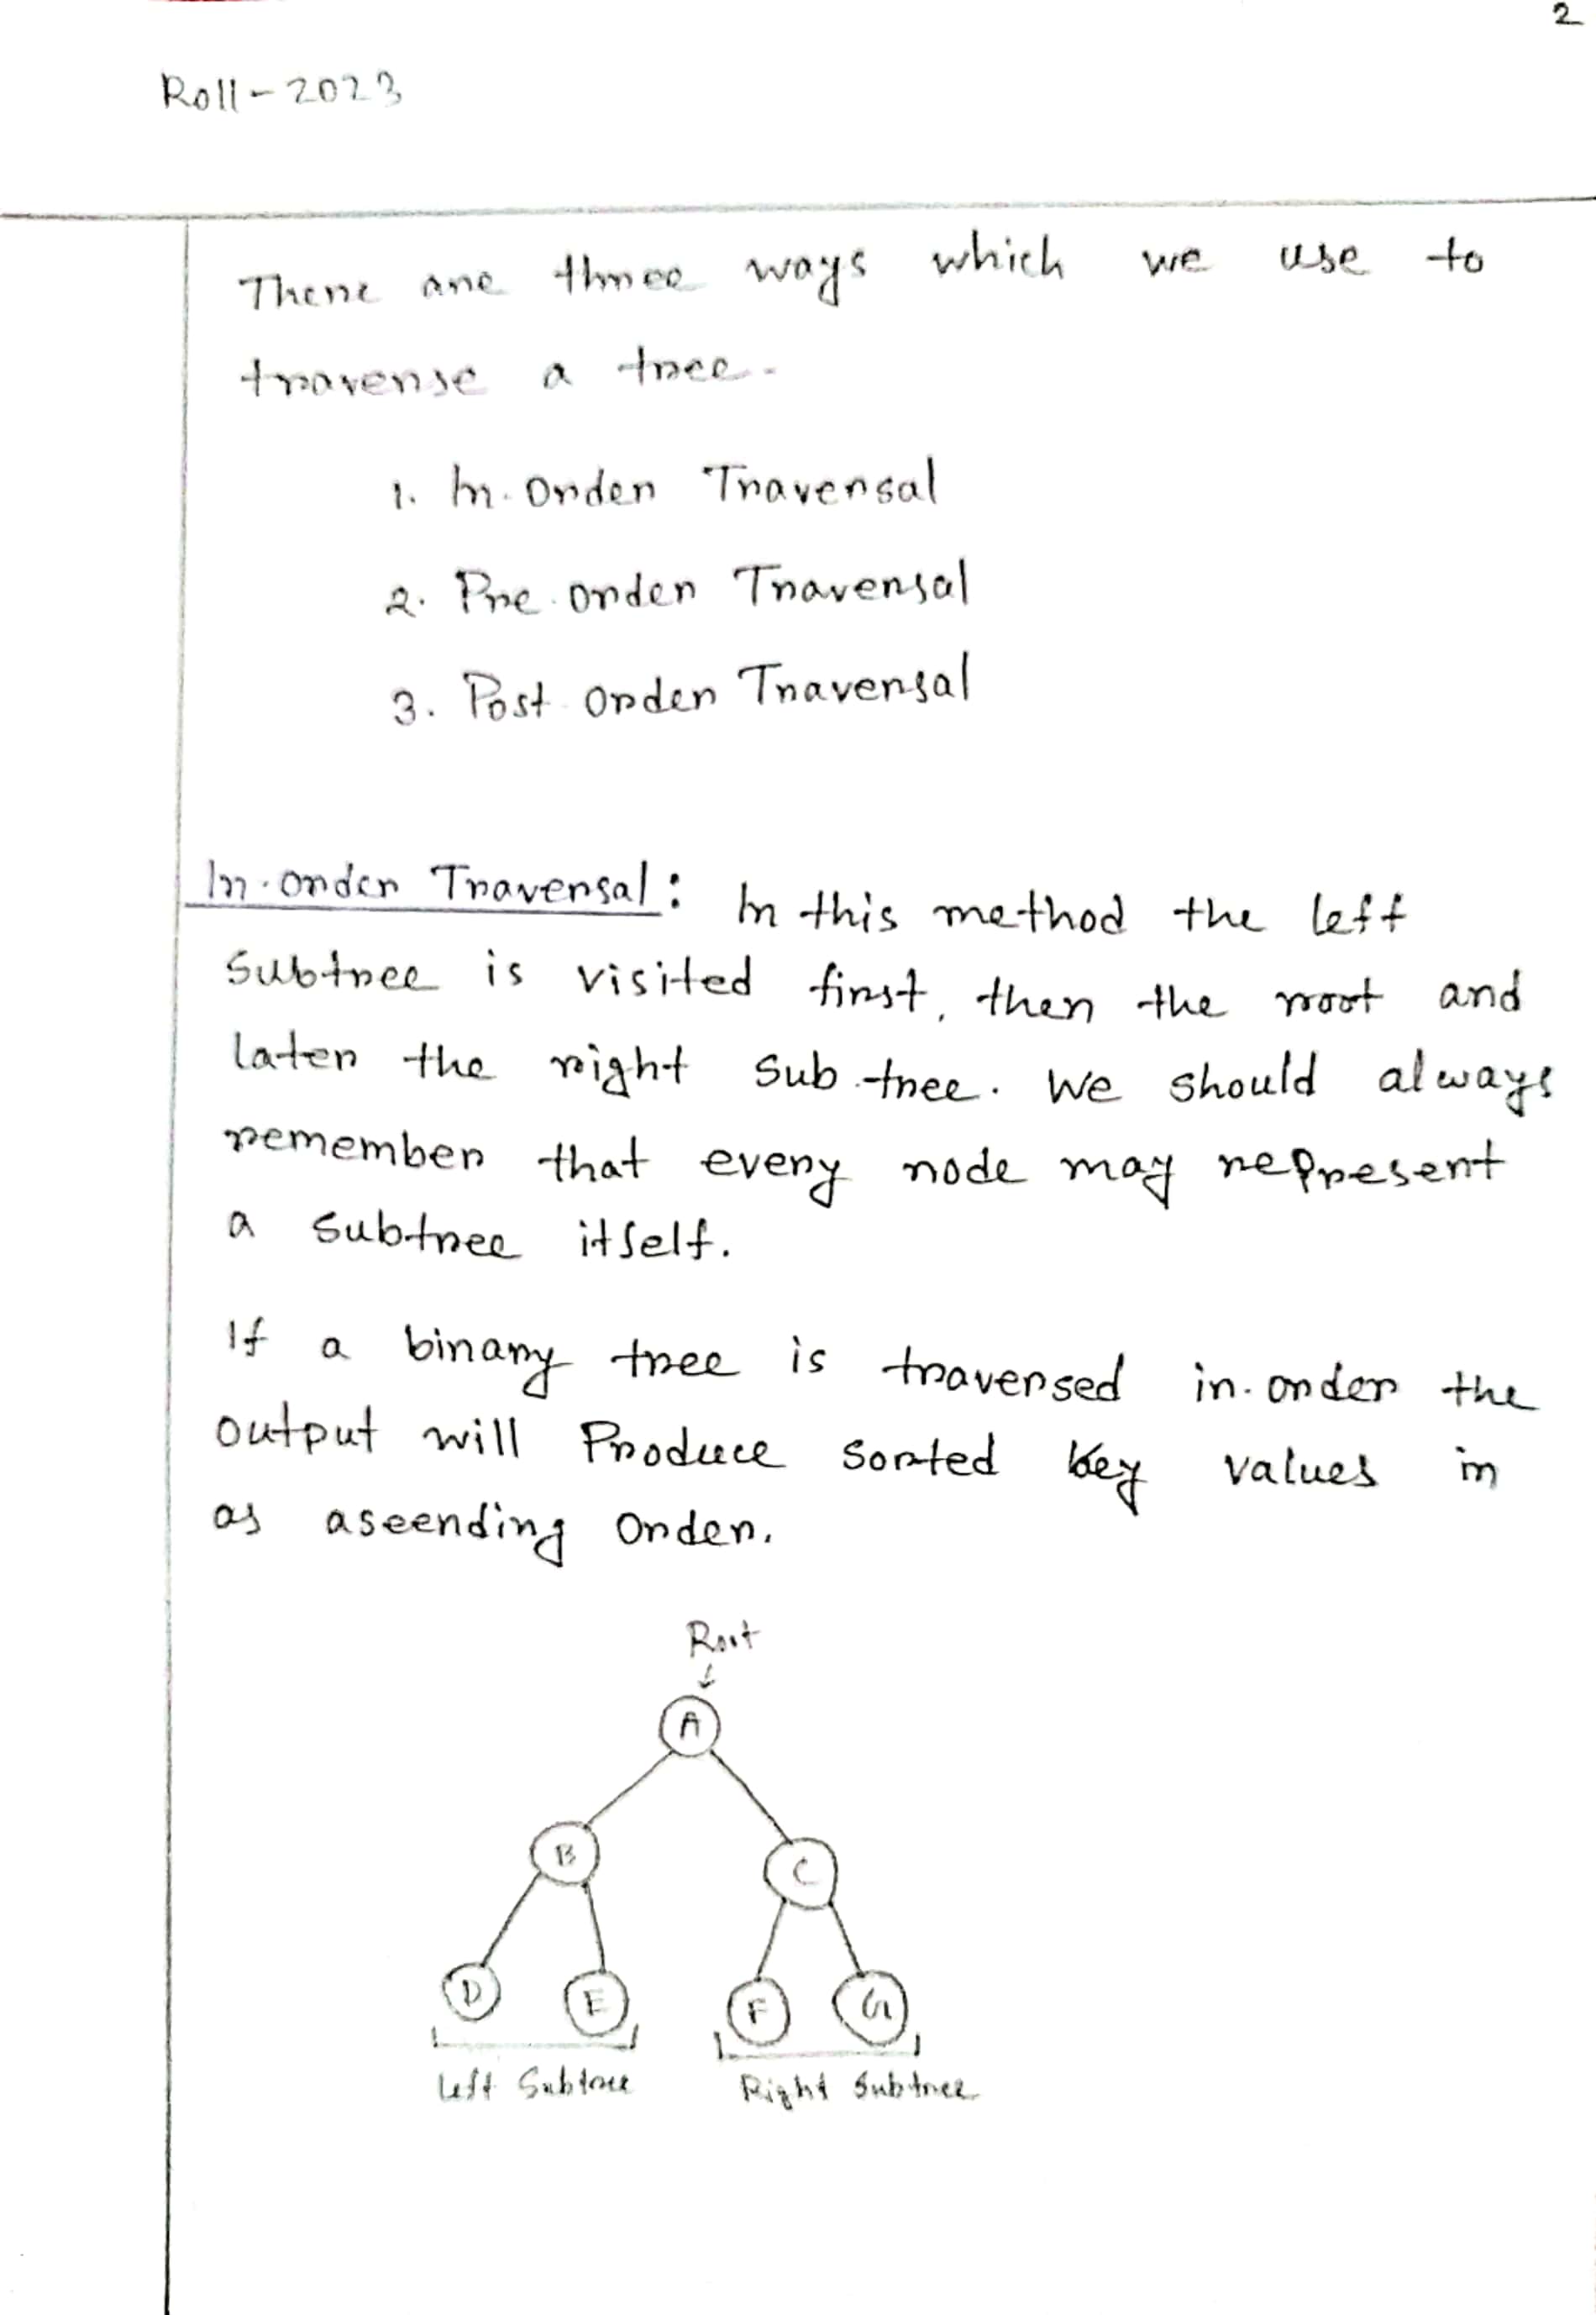 2
Roll-2023
There are three ways which we use to
traverse a tree.
1. In-order Traversal
2. Pre-order Traversal
3. Post-order Traversal
In-order Traversal: In this method the left
subtree is visited first, then the root and
later the right sub-tree. We should always
remember that every node may represent
a subtree itself.
If a binary tree is traversed in-order the
output will Produce sorted key values in
as aseending order.
Root
A
B
C
D
E
F
G
Left Subtree
Right Subtree